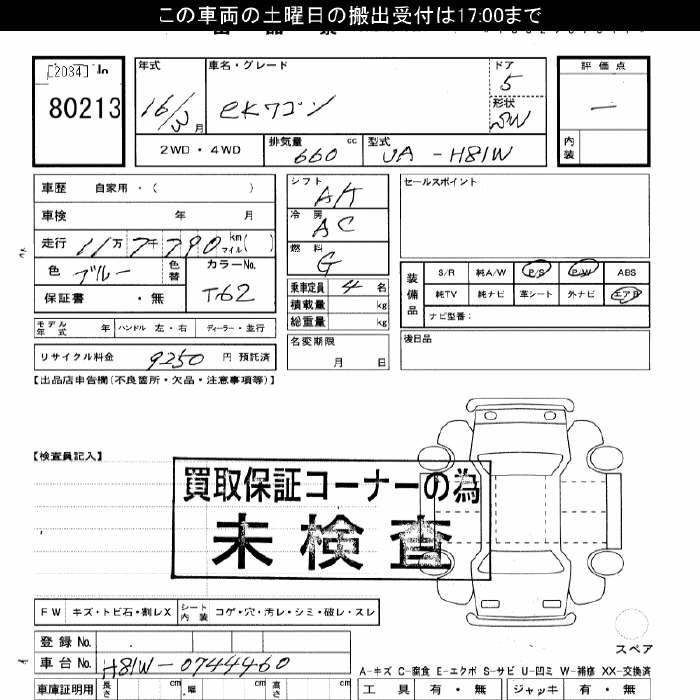 この車両の土曜日の搬出受付は17:00まで
[2034]
80213
年式 車名・グレード ドア 評価点
16/3月 eKワゴン 5
形状 SW
2WD・4WD 排気量 660 cc 型式 UA-H81W 内装
車歴 自家用・( ) シフト AT セールスポイント
車検 年 月 冷房 AC
走行 11万7千790km マイル( ) 燃料 G
色 ブルー 色替 カラーNo. T62
装備品 S/R 純A/W P/S P/W ABS
乗車定員 4 名
純TV 純ナビ 革シート 外ナビ エアB
保証書 ・無 積載量 kg
ナビ型番:
総重量 kg
モデル年式 年 ハンドル 左・右 ディーラー・並行
名変期限 月 日 後日品
リサイクル料金 9250 円 預託済
【出品店申告欄(不良箇所・欠品・注意事項等)】
【検査員記入】
買取保証コーナーの為
未検査
FW キズ・トビ石・割レX シート内装 コゲ・穴・汚レ・シミ・破レ・スレ
登録No.
スペア
車台No. H81W-0744460
A-キズ C-腐食 E-エクボ S-サビ U-凹ミ W-補修 XX-交換済
車庫証明用 長さ cm 幅 cm 高さ cm 工具 有・無 ジャッキ 有・無